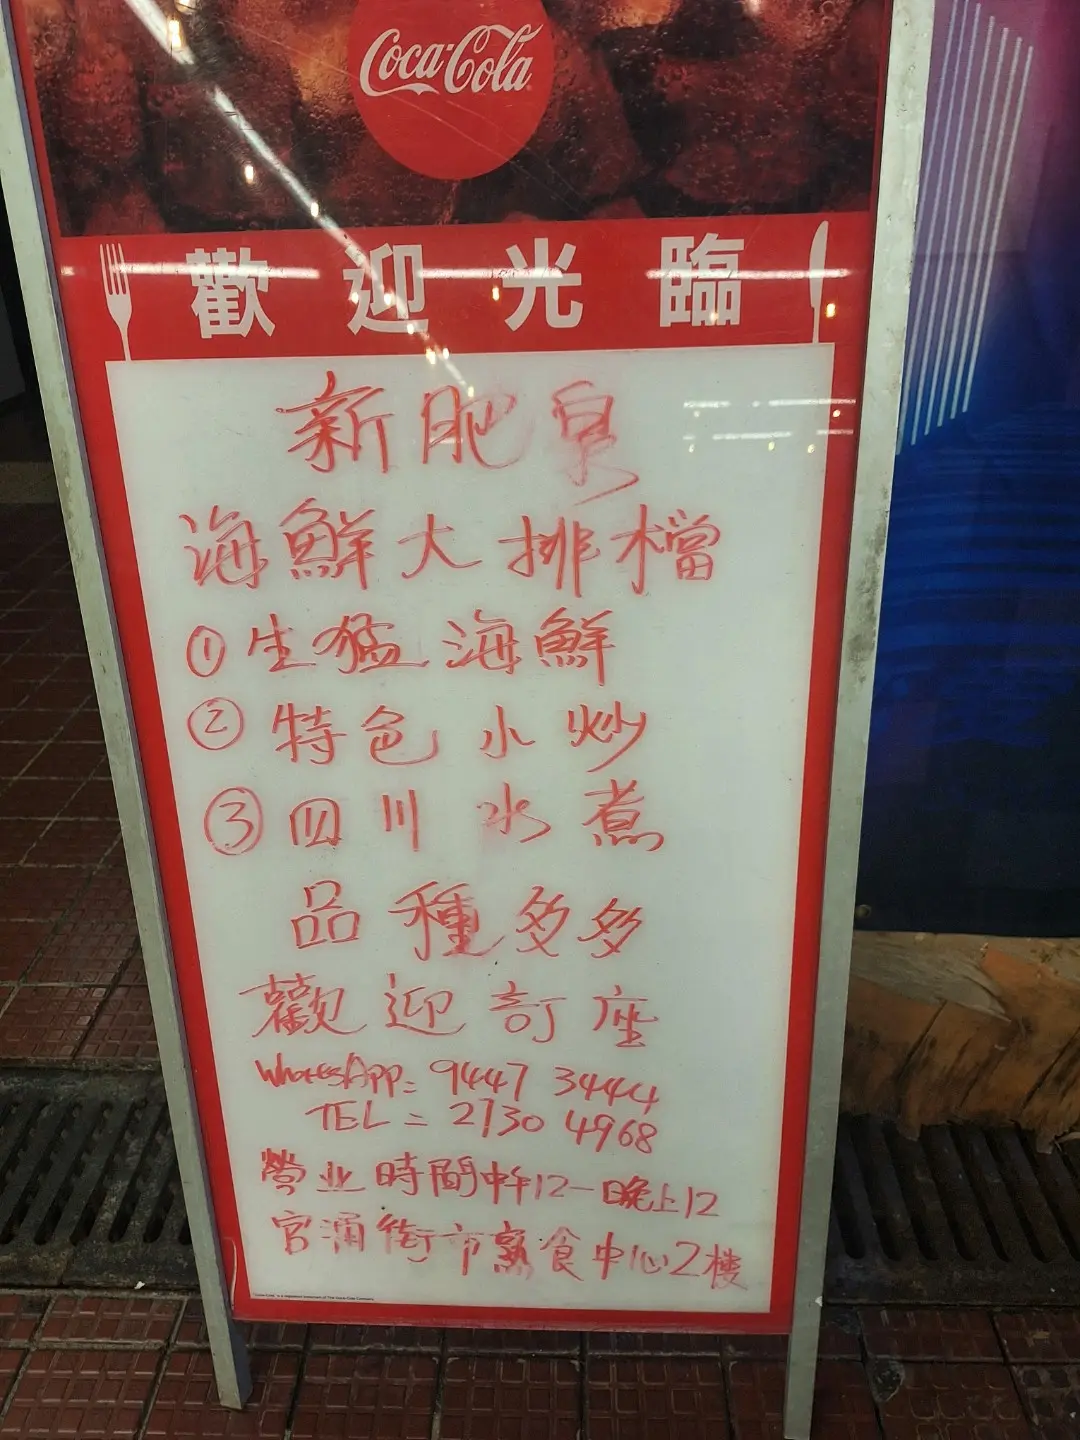 Coca-Cola
歡迎光臨
新肥泉
海鮮大排檔
① 生猛海鮮
② 特色小炒
③ 四川水煮
品種多多
歡迎訂座
WhatesApp: 9447 3444
TEL = 2730 4968
營业時間中午12一晚上12
官涌街市熟食中心2樓